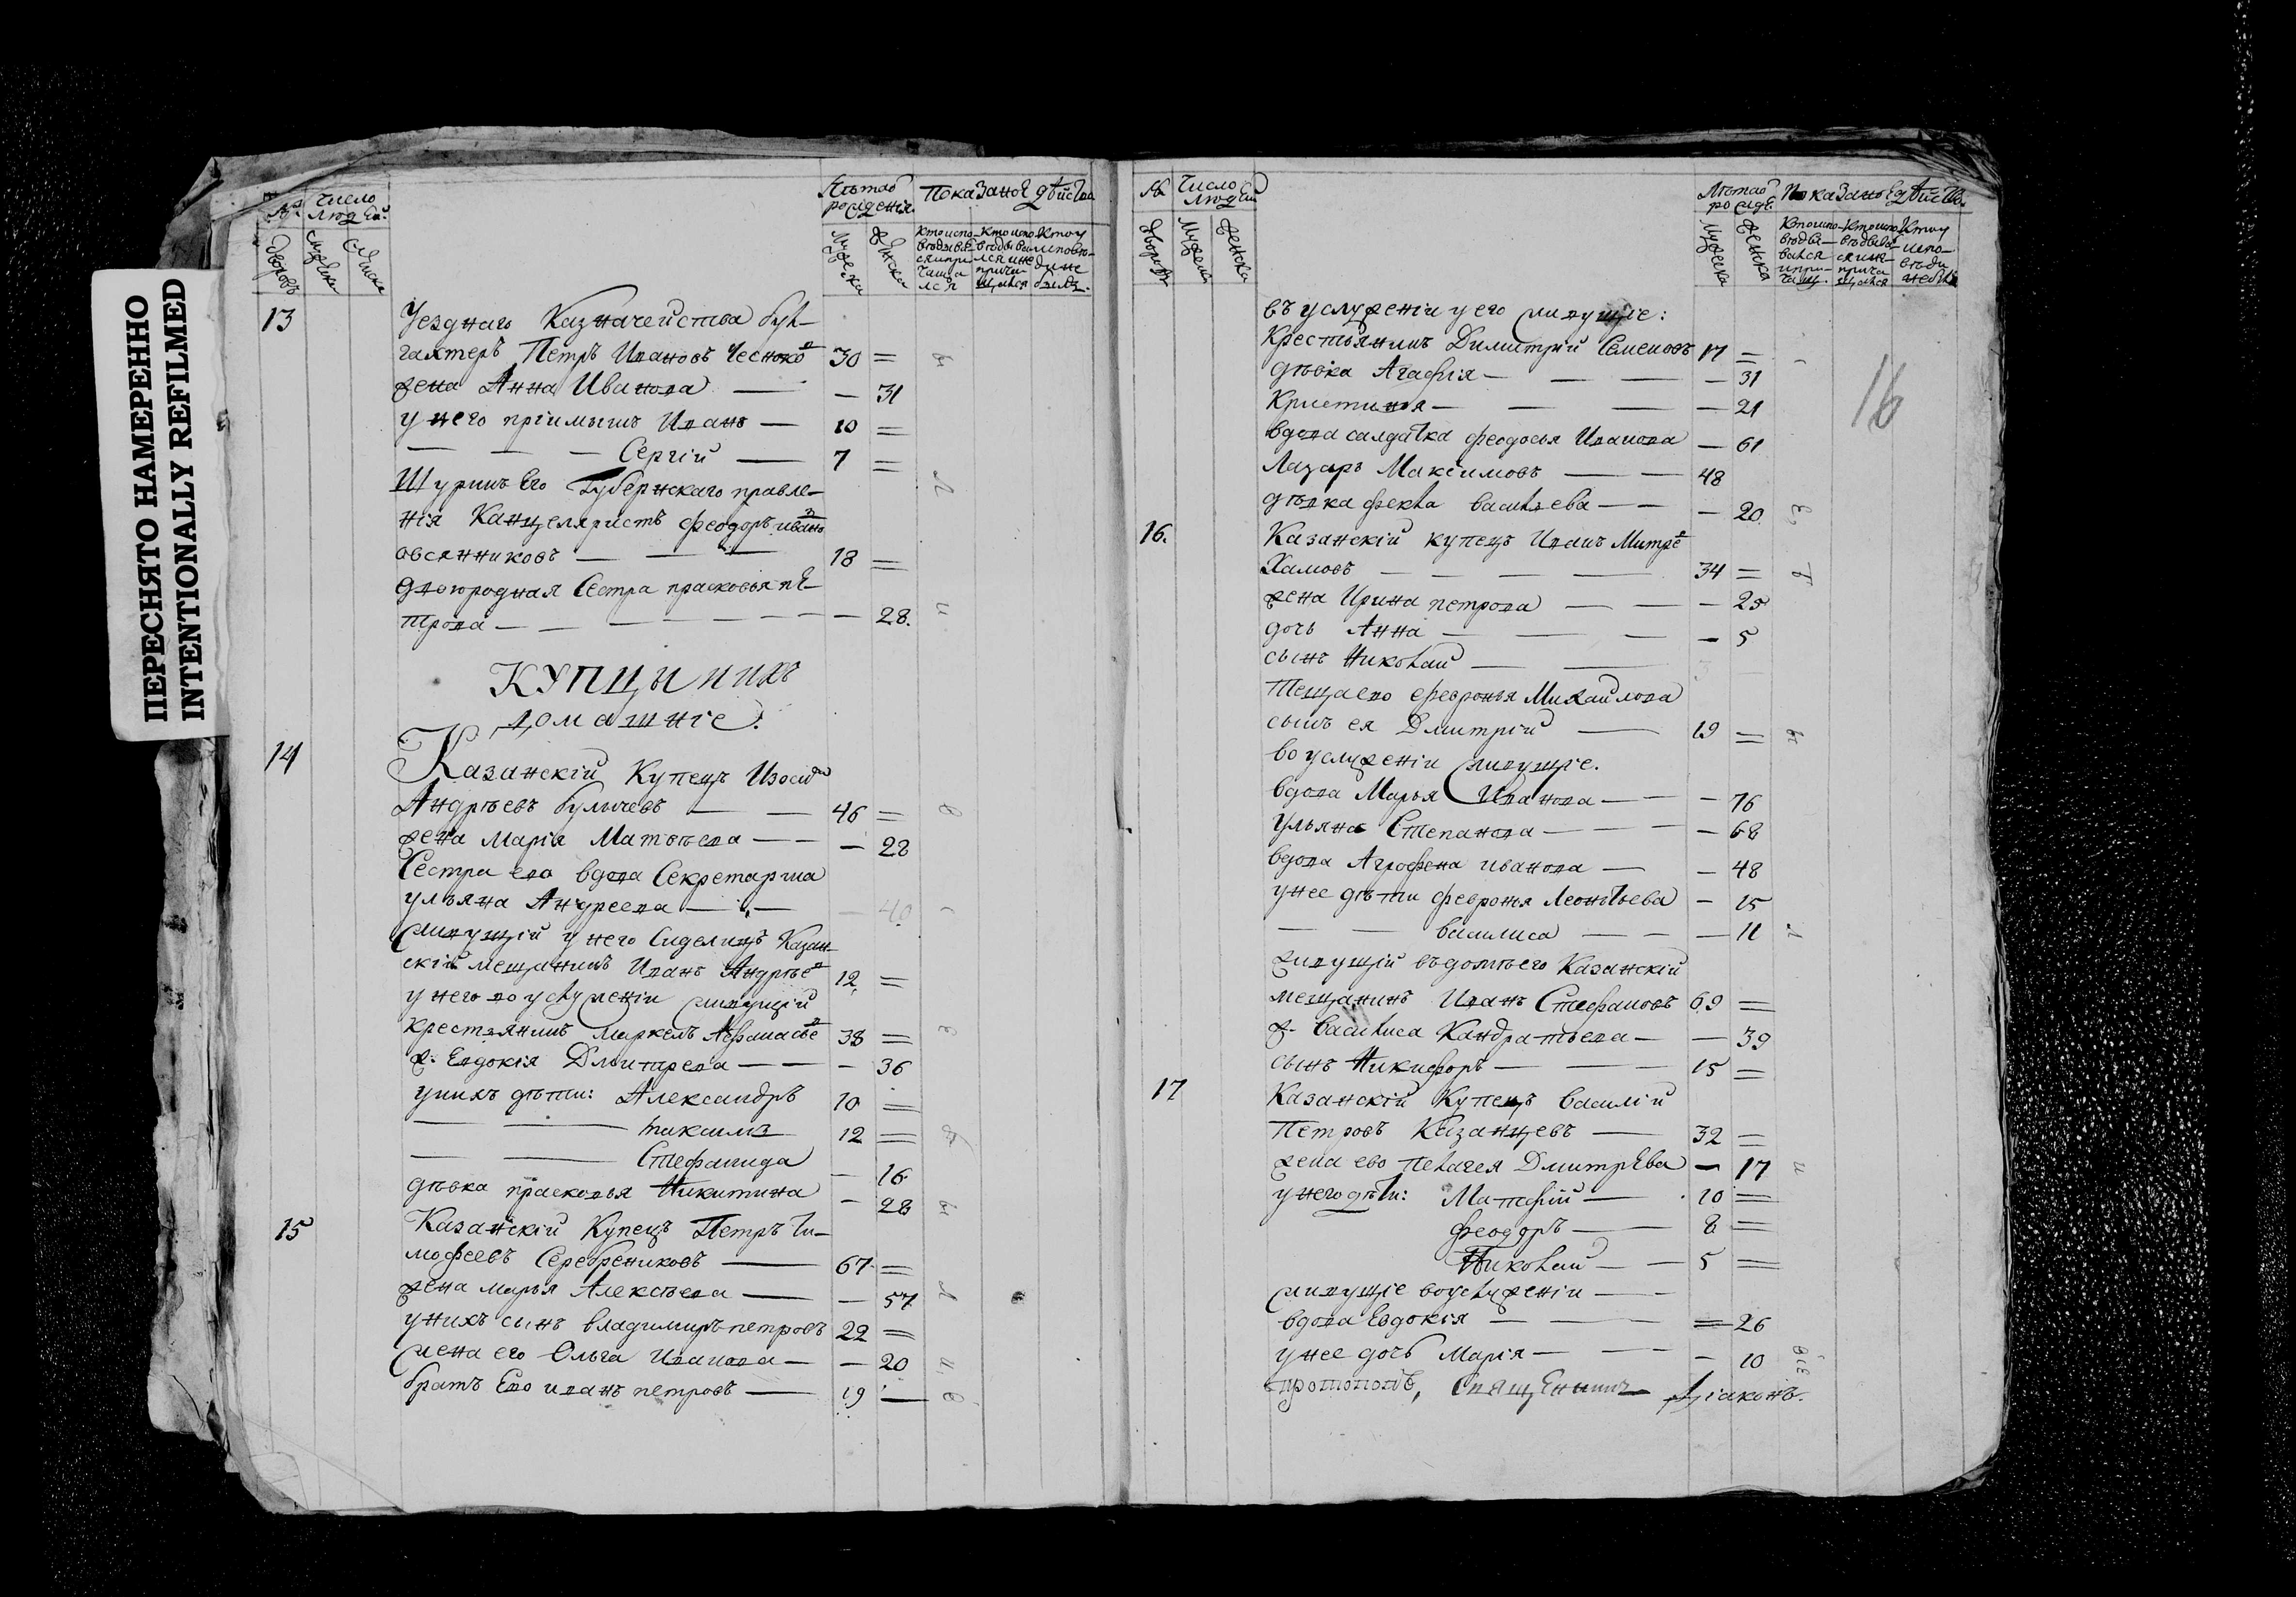 ПЕРЕСНЯТО НАМЕРЕННО
INTENTIONALLY REFILMED
№ Число людей
Лѣта от рожденія
Показаное дѣйства
дворовъ
мужеска
женска
13 Уезднаго Казначейства бух-
гахтеръ Петръ Ивановъ Чесноковъ 30 =
жена Анна Иванова — — 31
у него пріимышъ Иванъ — 10 =
— — — Сергій — 7 =
Шуринъ Его Губернскаго правле-
нія Канцеляристъ Феодоръ Ивановъ
овсянниковъ — — — 18 =
двоюродная Сестра прасковья пе-
трова — — — — — — — 28.
КУПЦЫ И ИХЪ
домашніе.
14 Казанскій Купецъ Изосима
Андрѣевъ булычевъ — — 46 =
жена Марія Матвѣева — — — 28
Сестра ево вдова Секретарша
ульяна Андреева — — — 40
Живущій у него Сиделецъ Казан-
скій мещанинъ Иванъ Андрѣевъ 12 =
у него во услуженіи живущій
крестьянинъ Маркелъ Афанасьевъ 38 =
ж. Евдокія Дмитрева — — — 36
у нихъ дѣти: Александръ 10 =
— — максимъ 12 =
— — Стефанида — 16
дѣвка прасковья Никитина — 28
15 Казанскій Купецъ Петръ Ти-
мофеевъ Серебрениковъ — 67 =
жена марья Алексѣева — — 57
у нихъ сынъ владимиръ петровъ 22 =
Жена его Ольга Иванова — — 20
братъ Ево иванъ петровъ — 19 —
№ Число людей
Лѣта от рожде.
Показаное дѣйств.
дворовъ
мужеска
женска
16
въ услуженіи у его живущіе:
Крестьянинъ Димитрій Семеновъ 17 =
дѣвка Агафія — — — — 31
Кристинія — — — — 21
вдова салдатка феодосья Иванова — 61
Лазарь Максимовъ — — 48
дѣвка фекла васильева — — — 20
16. Казанскій купецъ Иванъ Митре
Хамовъ — — — — 34 =
жена Ирина петрова — — — 25
дочь Анна — — — — 5
сынъ Николай — —
теща ево февронья Михаилова
сынъ ея Дмитрій — 19 =
во услуженіи живущіе.
вдова Марья Иванова — — — 76
ульяна Степанова — — — 68
вдова Агрофена иванова — — 48
у нее дѣти февронья Леонтьева — 15
— — василиса — — — 11
живущій въ домѣ его Казанскій
мещанинъ Иванъ Стефановъ 69 =
ж. василиса Кандратьева — — 39
сынъ Никифоръ — — 15 =
17 Казанскій Купецъ василій
Петровъ Казанцевъ — 32 =
жена ево пелагея Дмитрева — 17
у него дѣти: Матфій — 10 =
феодоръ — 8 =
Николай — — 5 =
живущіе во услуженіи — —
вдова Евдокія — — — = 26
у нее дочь Марія — — — — 10
протопопъ, Священникъ Діаконъ.